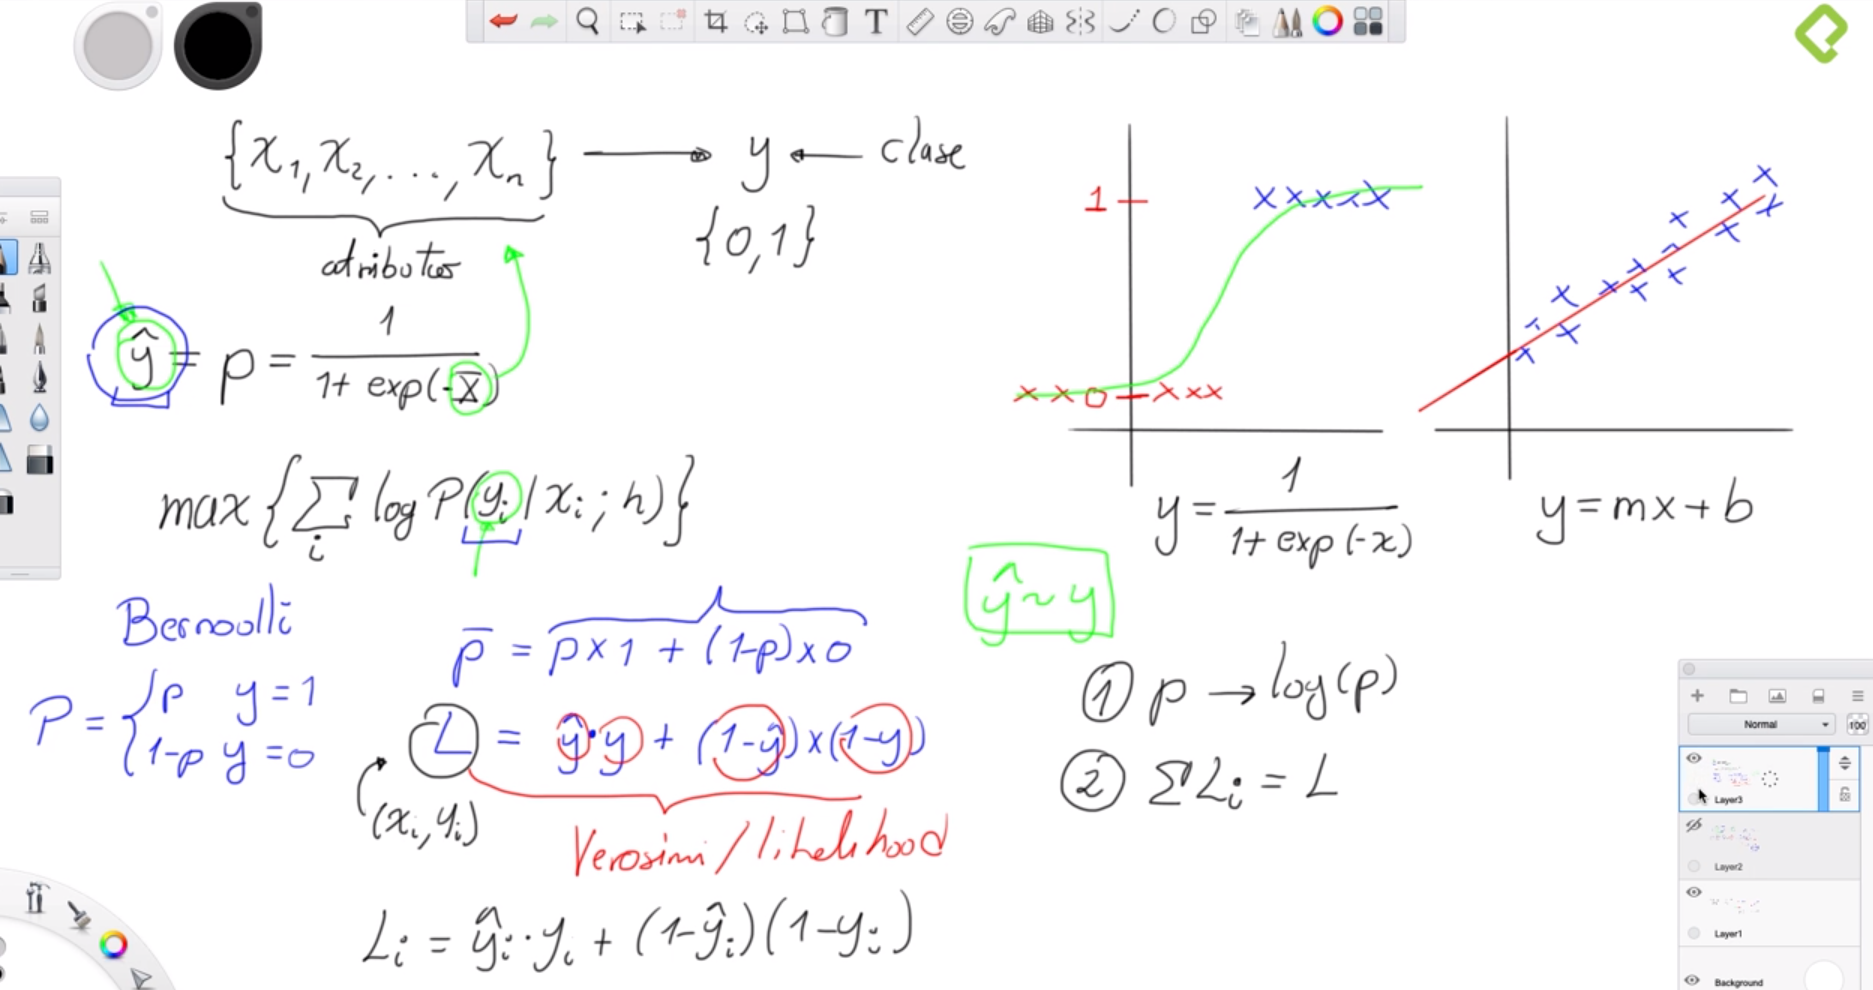 {x₁, x₂, ..., xₙ} → y ← clase
atributos
{0,1}
ŷ = p = 1 / (1+ exp(-x̄))
max{Σᵢ log P(yᵢ | xᵢ ; h)}
Bernoulli
P = { p y=1
1-p y=0
p̄ = p×1 + (1-p)×0
L = ŷ·y + (1-ŷ)×(1-y)
(xᵢ, yᵢ)
Verosimi/likelihood
Lᵢ = ŷᵢ·yᵢ + (1-ŷᵢ)(1-yᵢ)
1
0
y = 1 / (1+ exp(-x))
y=mx+b
ŷ~y
① p → log(p)
② ΣLᵢ = L
T
Normal
100
Layer3
Layer2
Layer1
Background